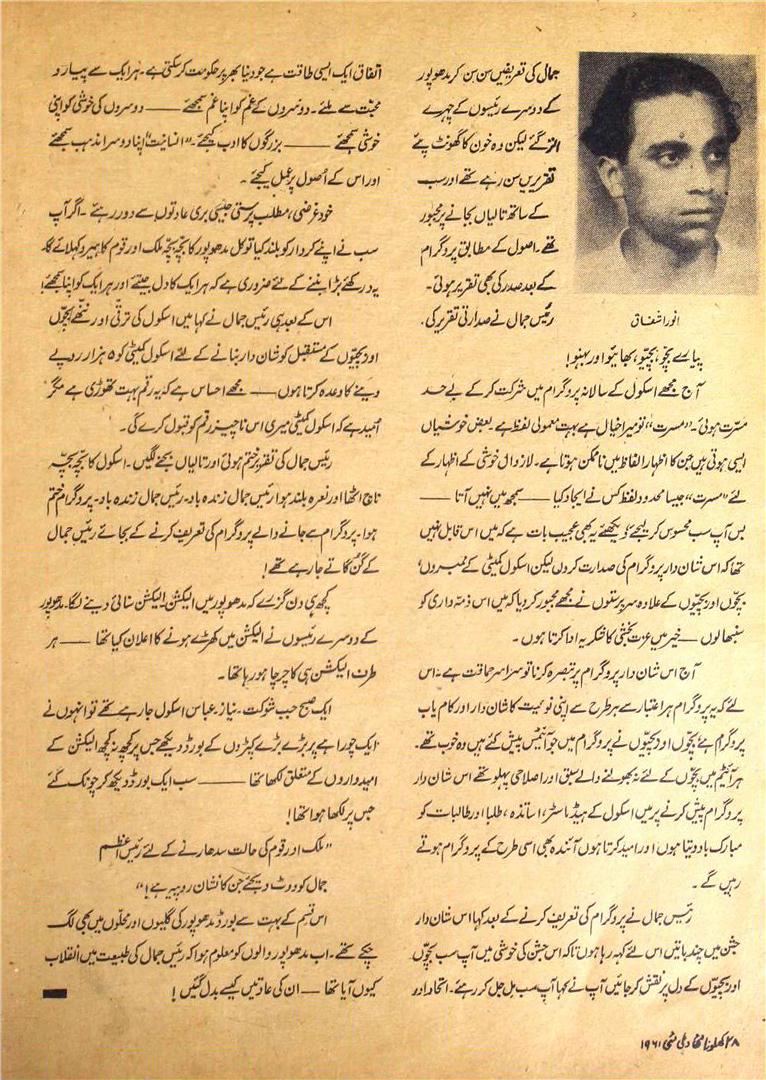 جمال کی تعریفیں سن سن کر مدھو پور
کے دوسرے رئیسوں کے چہرے
اتر گئے لیکن وہ خون کا گھونٹ پئے
تقریریں سن رہے تھے اور سب
کے ساتھ تالیاں بجانے پر مجبور
تھے۔ اصول کے مطابق پروگرام
کے بعد صدر کی بھی تقریر ہوئی۔
رئیس جمال نے صدارتی تقریر کی۔
انور اشفاق
پیارے بچّو، بچیّو، بھائیو اور بہنو!
آج مجھے اسکول کے سالانہ پروگرام میں شرکت کر کے بے حد
مسرّت ہوئی۔ "مسرت" تو میرا خیال ہے بہت معمولی لفظ ہے۔ بعض خوشیاں
ایسی ہوتی ہیں جن کا اظہار الفاظ میں ناممکن ہوتا ہے۔ لازوال خوشی کے اظہار کے
لئے "مسرت" جیسا محدود لفظ کس نے ایجاد کیا —— سمجھ میں نہیں آتا ——
بس آپ سب محسوس کر لیجئے دیکھئے یہ بھی عجیب بات ہے کہ میں اس قابل نہیں
تھا کہ اس شان دار پروگرام کی صدارت کروں لیکن اسکول کمیٹی کے ممبروں،
بچّوں اور بچیّوں کے علاوہ سرپرستوں نے مجھے مجبور کر دیا کہ میں اس ذمّہ داری کو
سنبھالوں — خیر میں عزت بخشی کا شکریہ ادا کرتا ہوں۔
آج اس شان دار پروگرام پر تبصرہ کرنا تو سراسر حماقت ہے۔ اس
لئے کہ یہ پروگرام ہر اعتبار سے ہر طرح سے اپنی نوعیت کا شان دار اور کام یاب
پروگرام ہے بچّوں اور بچیّوں نے پروگرام میں جو آئٹیمس پیش کئے ہیں وہ خوب تھے۔
ہر آئٹیم میں بچّوں کے لئے نہ بھولنے والے سبق اور اصلاحی پہلو تھے اس شان دار
پروگرام پیش کرنے پر میں اسکول کے ہیڈ ماسٹر، اساتذہ، طلبا اور طالبات کو
مبارک باد دیتا ہوں اور امید کرتا ہوں آئندہ بھی اسی طرح کے پروگرام ہوتے
رہیں گے۔
رئیس جمال نے پروگرام کی تعریف کرنے کے بعد کہا اس شان دار
جشن میں چند باتیں اس لئے کہہ رہا ہوں تاکہ اس جشن کی خوشی میں آپ سب بچّوں
اور بچیّوں کے دل پر نقش کر جائیں آپ نے کہا آپ سب مل جل کر رہئے۔ اتحاد اور
اتّفاق ایک ایسی طاقت ہے جو دنیا بھر پر حکومت کر سکتی ہے۔ ہر ایک سے پیار و
محبّت سے ملئے۔ دوسروں کے غم کو اپنا غم سمجھئے —— دوسروں کی خوشی کو اپنی
خوشی سمجھئے —— بزرگوں کا ادب کیجئے۔ "انسانیت" اپنا دوسرا مذہب سمجھئے
اور اس کے اُصول پر عمل کیجئے۔
خود غرضی، مطلب پرستی جیسی بری عادتوں سے دور رہئے۔ اگر آپ
سب نے اپنے کردار کو بلند کیا تو کل مدھو پور کا بچّہ بچّہ ملک اور قوم کا ہیرو کہلائے گا۔
یاد رکھئے بڑا بننے کے لئے ضروری ہے کہ ہر ایک کا دل جیتئے اور ہر ایک کو اپنا سمجھئے!
اس کے بعد ہی رئیس جمال نے کہا میں اسکول کی ترقّی اور ننّھے بچّوں
اور بچیّوں کے مستقبل کو شان دار بنانے کے لئے اسکول کمیٹی کو ۵ ہزار روپے
دینے کا وعدہ کرتا ہوں —— مجھے احساس ہے کہ یہ رقم بہت تھوڑی ہے مگر
اُمید ہے کہ اسکول کمیٹی میری اس ناچیز رقم کو قبول کرے گی۔
رئیس جمال کی تقریر ختم ہوئی اور تالیاں بجنے لگیں۔ اسکول کا بچّہ بچّہ
ناچ اٹھا اور نعرہ بلند ہوا رئیس جمال زندہ باد۔ رئیس جمال زندہ باد۔ پروگرام ختم
ہوا۔ پروگرام سے جانے والے پروگرام کی تعریف کرنے کے بجائے رئیس جمال
کے گُن گاتے جا رہے تھے!
کچھ ہی دن گزرے کہ مدھو پور میں الیکشن الیکشن سنائی دینے لگا۔ مدھو پور
کے دوسرے رئیسوں نے الیکشن میں کھڑے ہونے کا اعلان کیا تھا —— ہر
طرف الیکشن ہی کا چرچا ہو رہا تھا۔
ایک صبح جب شوکت۔ نیاز۔ عباس اسکول جا رہے تھے تو انہوں نے
ایک چوراہے پر بڑے بڑے کپڑوں کے بورڈ دیکھے جس پر کچھ نہ کچھ الیکشن کے
امیدواروں کے متعلق لکھا تھا —— سب ایک بورڈ دیکھ کر چونک گئے
جس پر لکھا ہوا تھا!
"ملک اور قوم کی حالت سدھارنے کے لئے رئیس اعظم
جمال کو ووٹ دیجئے جن کا نشان روپیہ ہے!"
اس قسم کے بہت سے بورڈ مدھو پور کی گلیوں اور محلّوں میں بھی لگ
چکے تھے۔ اب مدھو پور والوں کو معلوم ہوا کہ رئیس جمال کی طبیعت میں انقلاب
کیوں آیا تھا — ان کی عادتیں کیسے بدل گئیں!
۲۸ کھلونا نئی دہلی مئی ۱۹۶۱